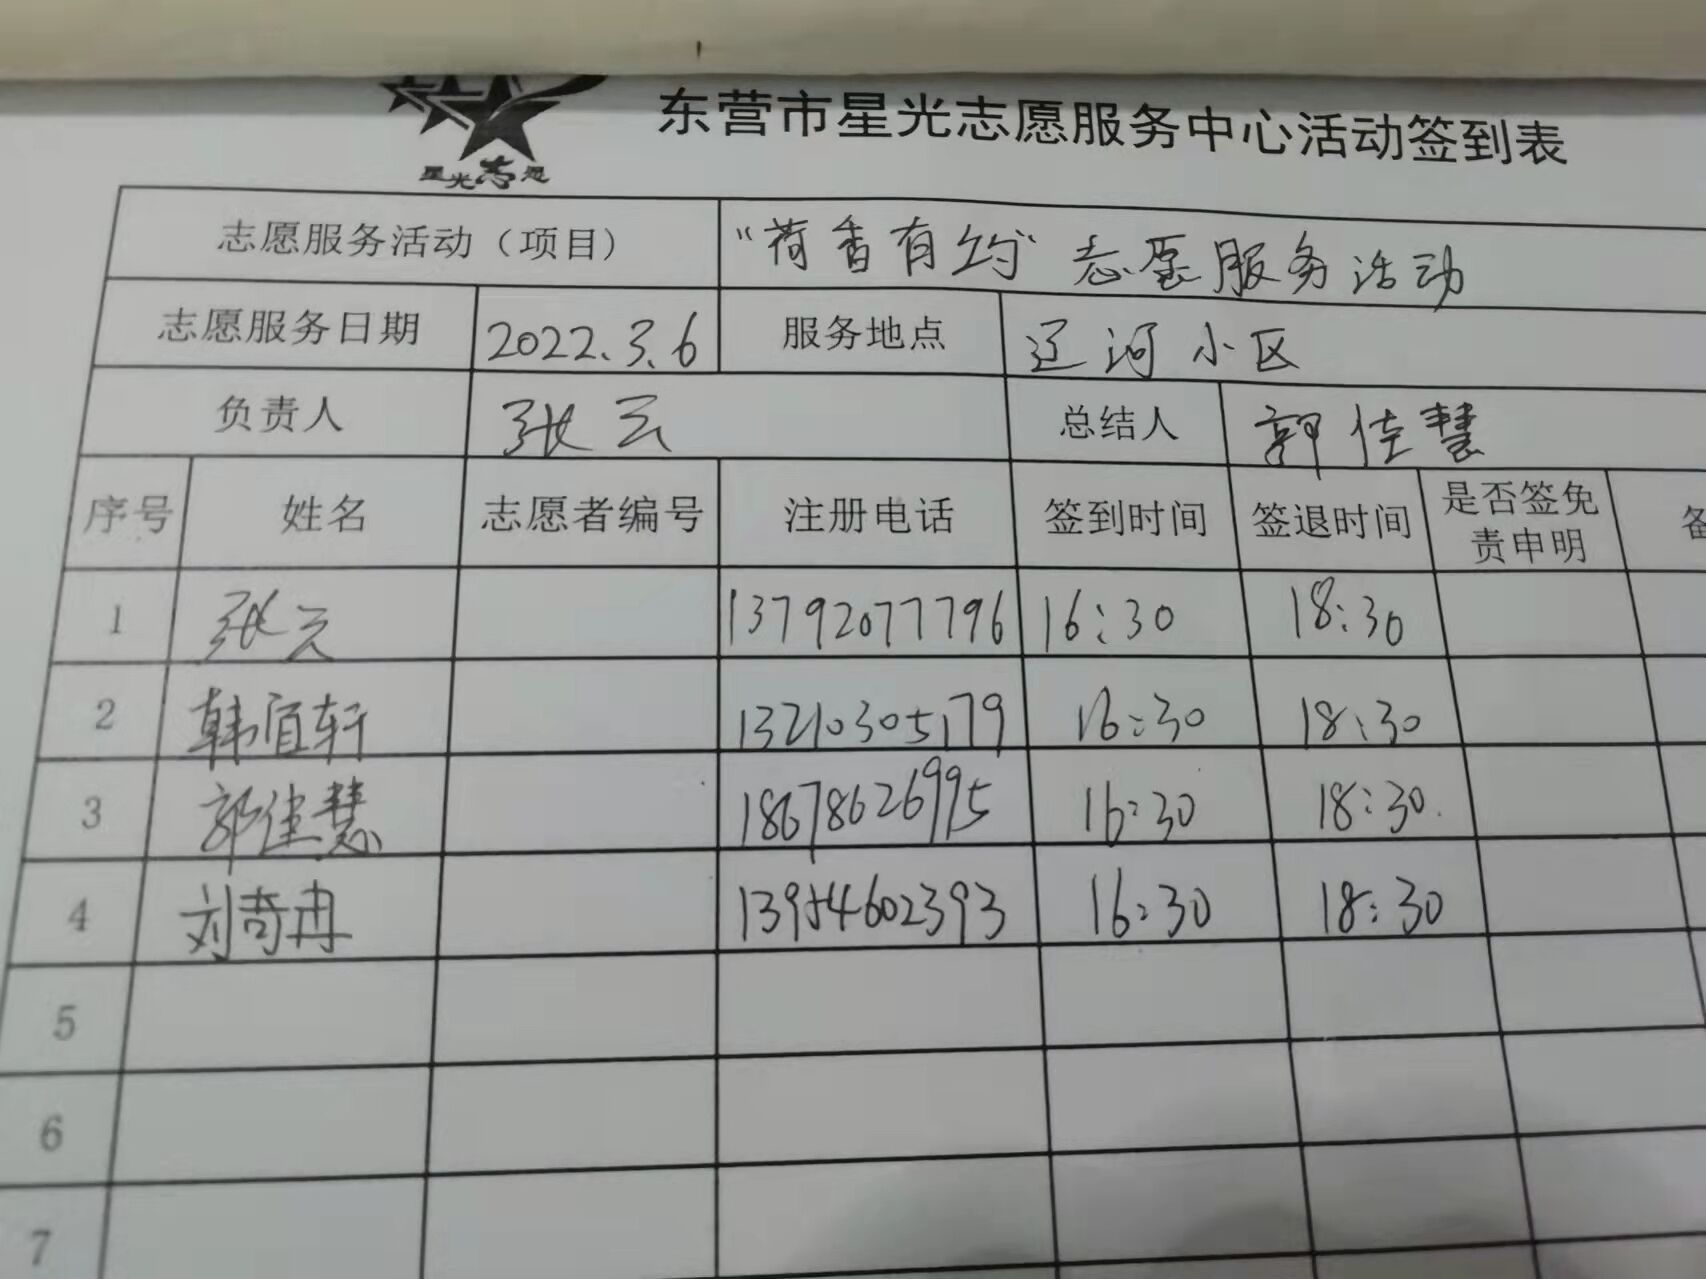 东营市星光志愿服务中心活动签到表
星光志愿
志愿服务活动（项目） “荷香有约”志愿服务活动
志愿服务日期 2022.3.6 服务地点 辽河小区
负责人 张云 总结人 郭佳慧
序号 姓名 志愿者编号 注册电话 签到时间 签退时间 是否签免责申明 备
1 张云 13792077796 16:30 18:30
2 韩宜轩 13210305179 16:30 18:30
3 郭佳慧 18678626995 16:30 18:30
4 刘奇冉 13954602393 16:30 18:30
5
6
7